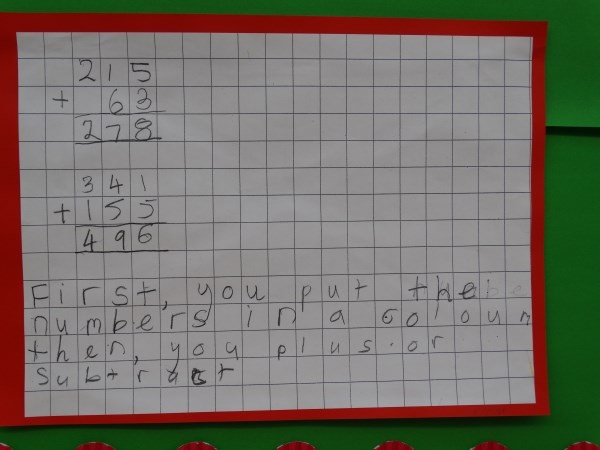 215
+ 63
278
341
+ 155
496
First, you put the
numbers in a coloun
then, you plus or
subtract